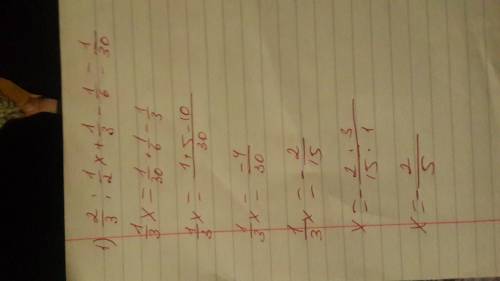 1) 2/3 · 1/2 x + 1/3 - 1/6 = 1/30
1/3 x = 1/30 + 1/6 - 1/3
1/3 x = (1 + 5 - 10)/30
1/3 x = -4/30
1/3 x = -2/15
x = -(2 · 3)/(15 · 1)
x = -2/5